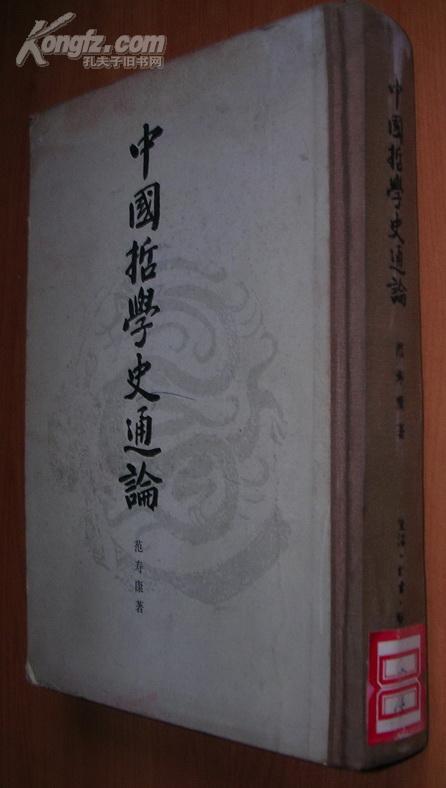 Kongfz.com
孔夫子旧书网
中國哲學史通論
范寿康著
中國哲學史通論
范寿康著